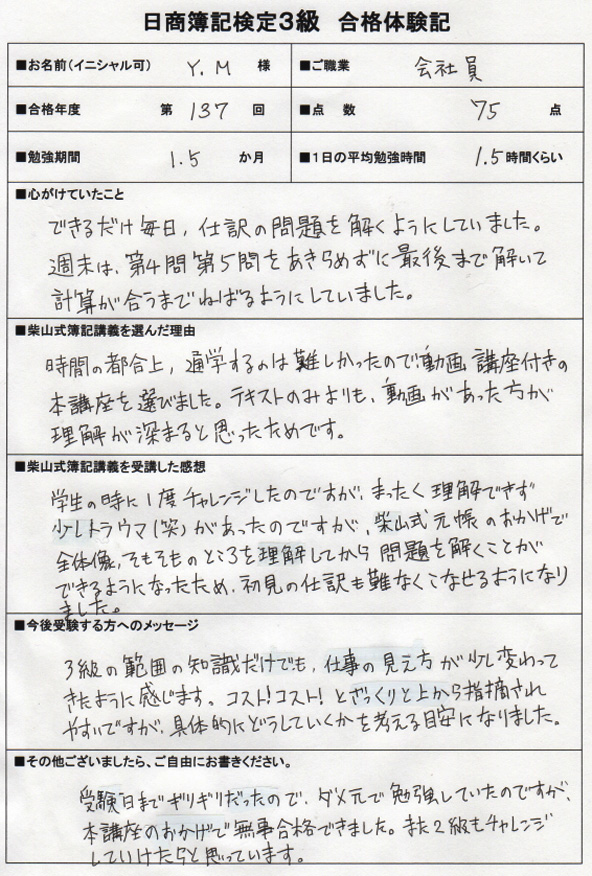 日商簿記検定3級 合格体験記
■お名前(イニシャル可) Y.M 様 ■ご職業 会社員
■合格年度 第 137 回 ■点 数 75 点
■勉強期間 1.5 か月 ■1日の平均勉強時間 1.5時間くらい
■心がけていたこと
できるだけ毎日、仕訳の問題を解くようにしていました。
週末は、第4問第5問をあきらめずに最後まで解いて
計算が合うまでねばるようにしていました。
■柴山式簿記講義を選んだ理由
時間の都合上、通学するのは難しかったので動画講座付きの
本講座を選びました。テキストのみよりも、動画があった方が
理解が深まると思ったためです。
■柴山式簿記講義を受講した感想
学生の時に1度チャレンジしたのですが、まったく理解できず
少しトラウマ(笑)があったのですが、柴山式元帳のおかげで
全体像、そもそものところを理解してから問題を解くことが
できるようになったため、初見の仕訳も難なくこなせるようになり
ました。
■今後受験する方へのメッセージ
3級の範囲の知識だけでも、仕事の見え方が少し変わって
きたように感じます。コスト!コスト!とざっくりと上から指摘され
やすいですが、具体的にどうしていくかを考える目安になりました。
■その他ございましたら、ご自由にお書きください。
受験日までギリギリだったので、ダメ元で勉強していたのですが、
本講座のおかげで無事合格できました。また2級もチャレンジ
していけたらと思っています。